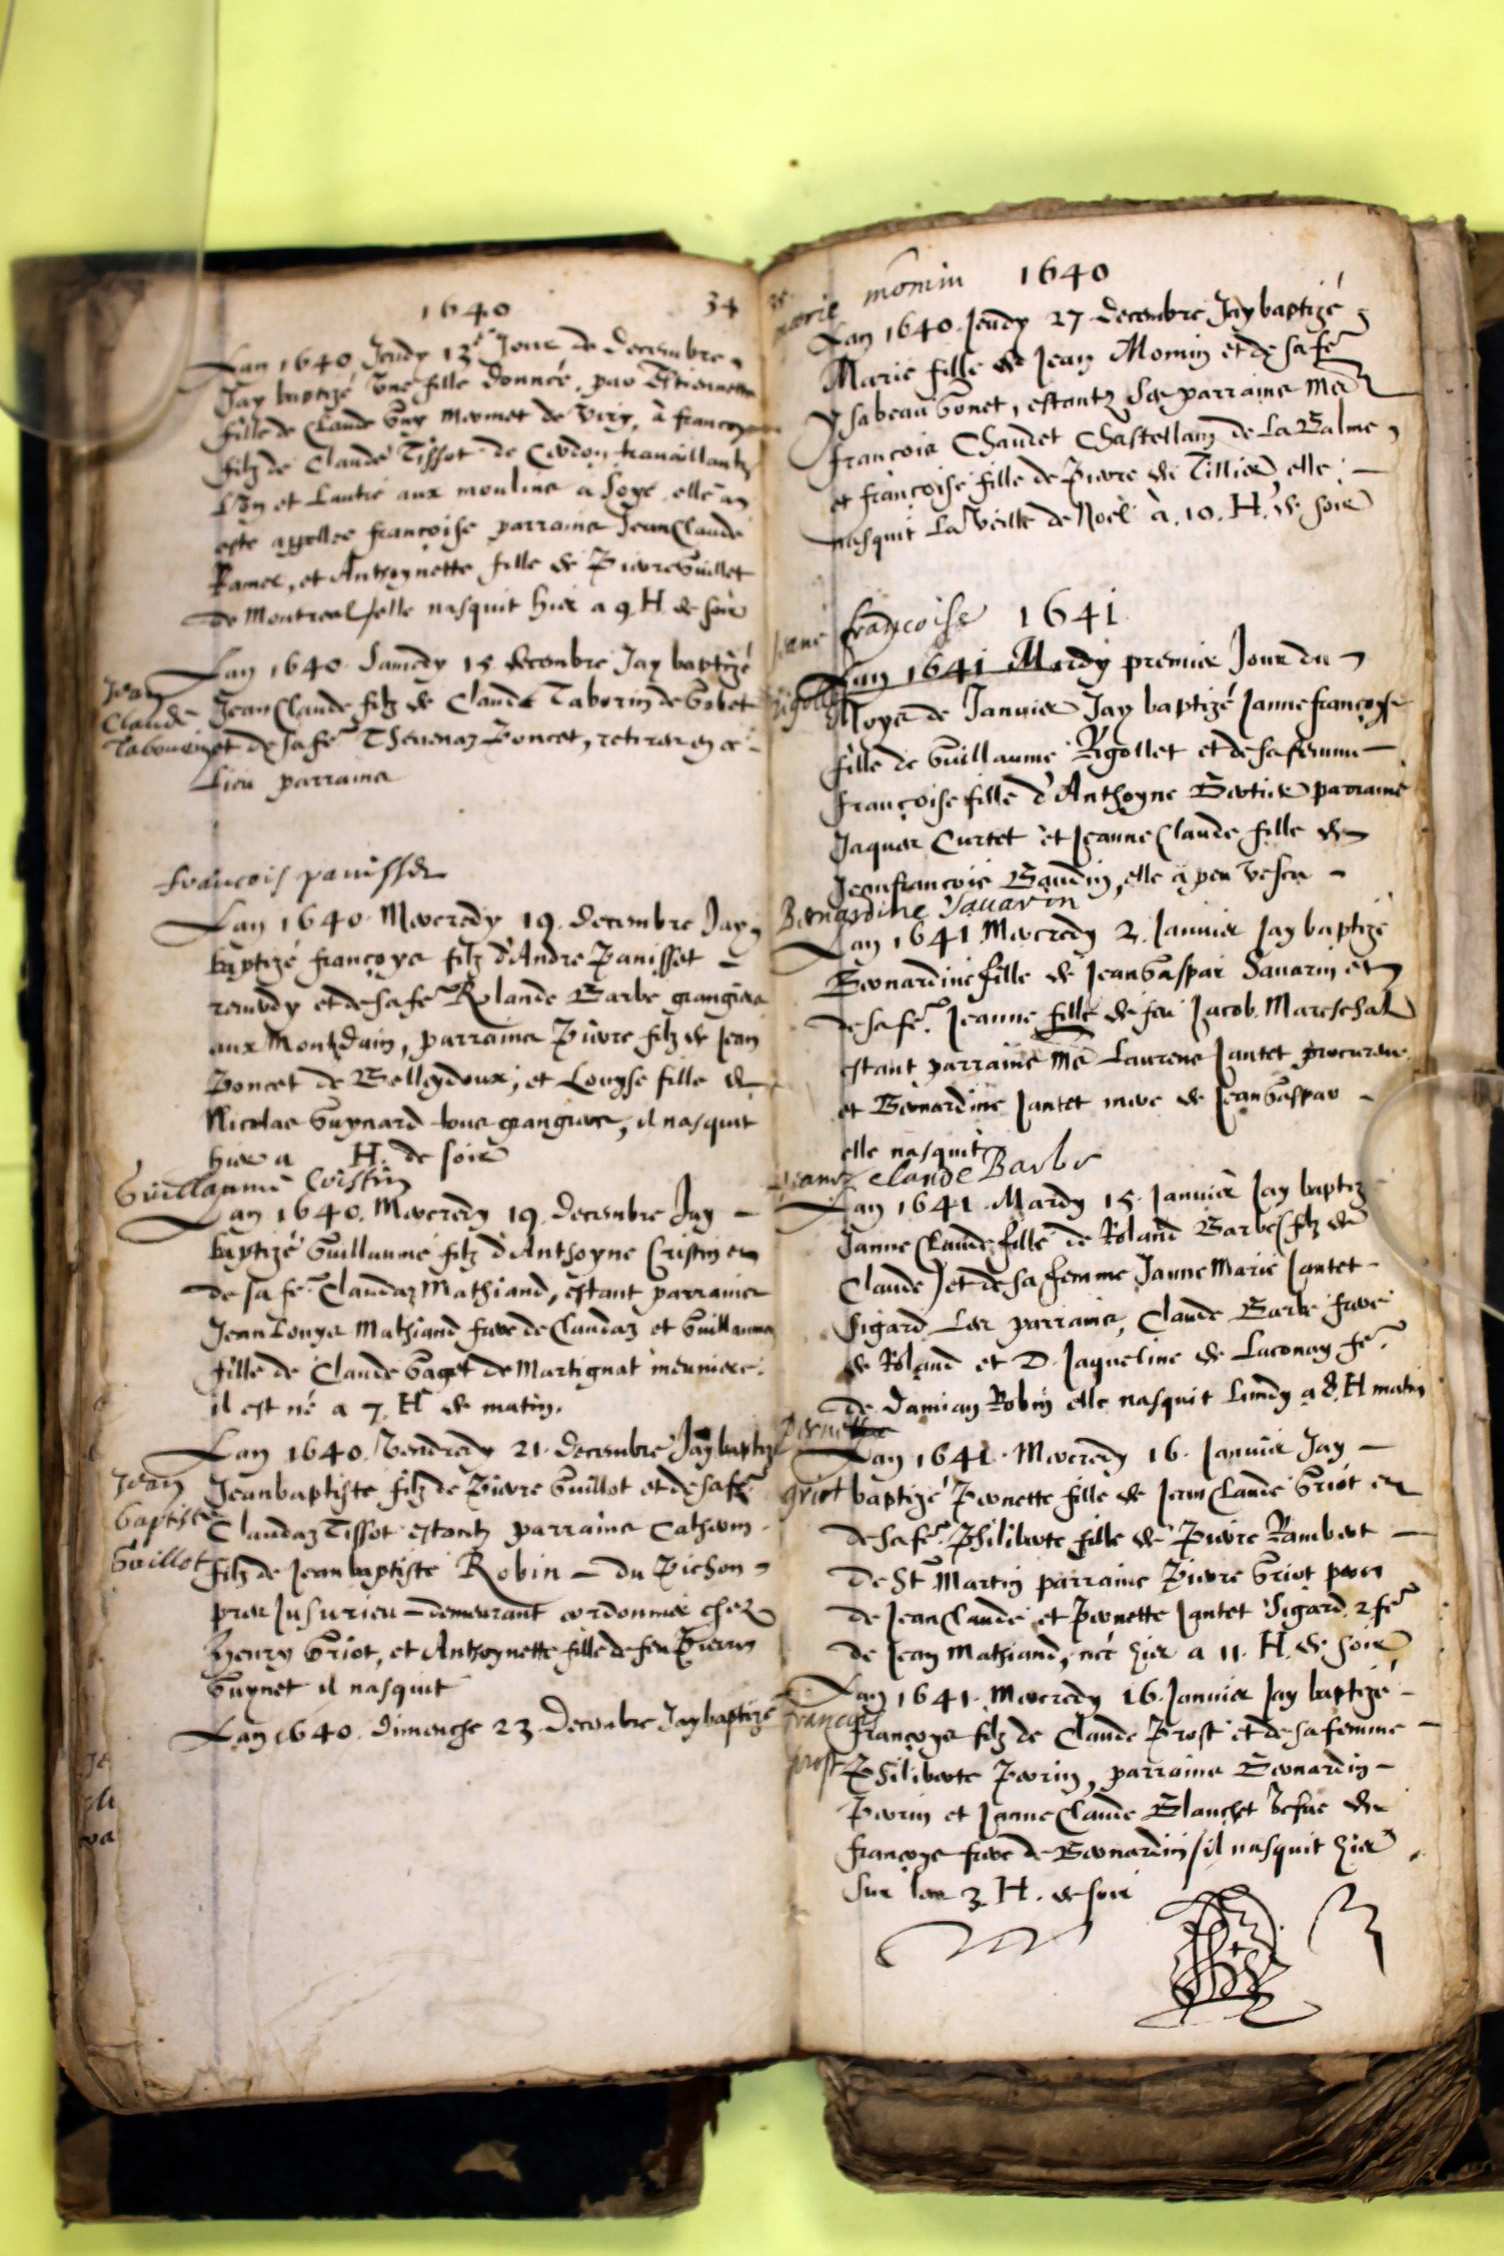 1640 34
Lan 1640 Jeudy 13e Jour de decembre
Jay baptizé une fille donnée, par Estiennette
fille de Claude Guy Mermet de Viry, à françoys
filz de Claude Tissot de Cerdon travaillantz
l'un et lautre aux moulins a Loye elle an
esté appellee françoise parrains Jean Claude
Ramel, et Anthoynette fille de Pierre Guillet
de Montreal / elle nasquit hier a 9 H de soir
Lan 1640 Samedy 15 decembre Jay baptizé
Jean
Jean Claude filz de Claude Taborin de Gobet
Claude
Tabourin et de sa fe Thevenaz Poncet, retirez en ce
lieu parrains
francois panisset
Lan 1640 Mercredy 19 decembre Jay
baptizé françoys filz d'Andre Panisset
et de sa fe Rolande Barbe grangiers
aux Montz d'ain, parrains Pierre filz de Jean
Poncet de Belleydoux, et Louyse fille de
Nicolas Guynard tous grangiers, il nasquit
hier a H. de soir
Guillaume Cristin
Lan 1640. Mercredy 19 decembre Jay
baptizé Guillaume filz d'Anthoyne Cristin et
de sa fe Claudaz Mathiand, estant parrains
Jean Louys Mathiand frere de Claudaz et Guillauma
fille de Claude Gaget de Martignat meuniere.
il est né a 7. H de matin.
Lan 1640. Vendredy 21. decembre Jay baptizé
Jean
Jean baptiste filz de Pierre Guillot et de sa fe
baptiste
Claudaz Tissot estantz parrains Catherin
Guillot
filz de Jean baptiste Robin du Pichon
pres Jusurieu demeurant cordonnier chez
Henry Griot, et Anthoynette fille de feu Pierre
Guynet il nasquit
Lan 1640. dimenche 23 decembre Jay baptizé
marie momin 1640
Lan 1640. Jeudy 27 decembre Jay baptizé
Marie fille de Jean Momin et de sa fe
Ysabeau Gonet, estantz ses parrains Me
françois Chaudet Chastellain de La Balme
et françoise fille de Pierre de Tillier, elle
nasquit La veille de Noel à. 10. H. de soir
Jeane francoise 1641
Lan 1641 Mardy premier Jour du
Rigollet
Moys de Janvier Jay baptizé Janne françoyse
fille de Guillaume Rigollet et de sa femme
françoise fille d'Anthoyne Bertier parrains
Jaques Curtet et Jeanne Claude fille de
Jean francois Gaudin, elle a peu vescu
Bernardine Savarin
Lan 1641 Mercredy 2. Janvier Jay baptizé
Bernardine fille de Jean Gaspar Savarin et
de sa fe. Jeanne fille de feu Jacob Mareschal
estant parrains Me Laurens Jantet procureur
et Bernardine Jantet mere de Jean Gaspar
elle nasquit
Jeane claude Barbe
Lan 1641. Mardy 15. Janvier Jay baptizé
Janne Claude fille de Roland Barbe (filz de
Claude) et de sa femme Janne Marie Jantet
Sigard Les parrains, Claude Barbe frere
de Roland et D. Jaqueline de Luconay fe.
de Damian Robin elle nasquit Lundy a 8. H matin
Pernette
Lan 1641. Mercredy 16. Janvier Jay
griot baptizé Pernette fille de Jean Claude Griot et
de sa fe. Philiberte fille de Pierre Rambert
de St Martin parrains Pierre Griot pere
de Jean Claude et Pernette Jantet Sigard. 2 fe
de Jean Mathiand, née hier a 11. H. de soir
Lan 1641. Mercredy 16. Janvier Jay baptizé
françoys
françoys filz de Claude Prost et de sa femme
prost Philiberte Perrin, parrains Bernardin
Perrin et Janne Claude Blanchet vefve de
françoys frere de Bernardin / il nasquit hier
sur les 3 H. de soir